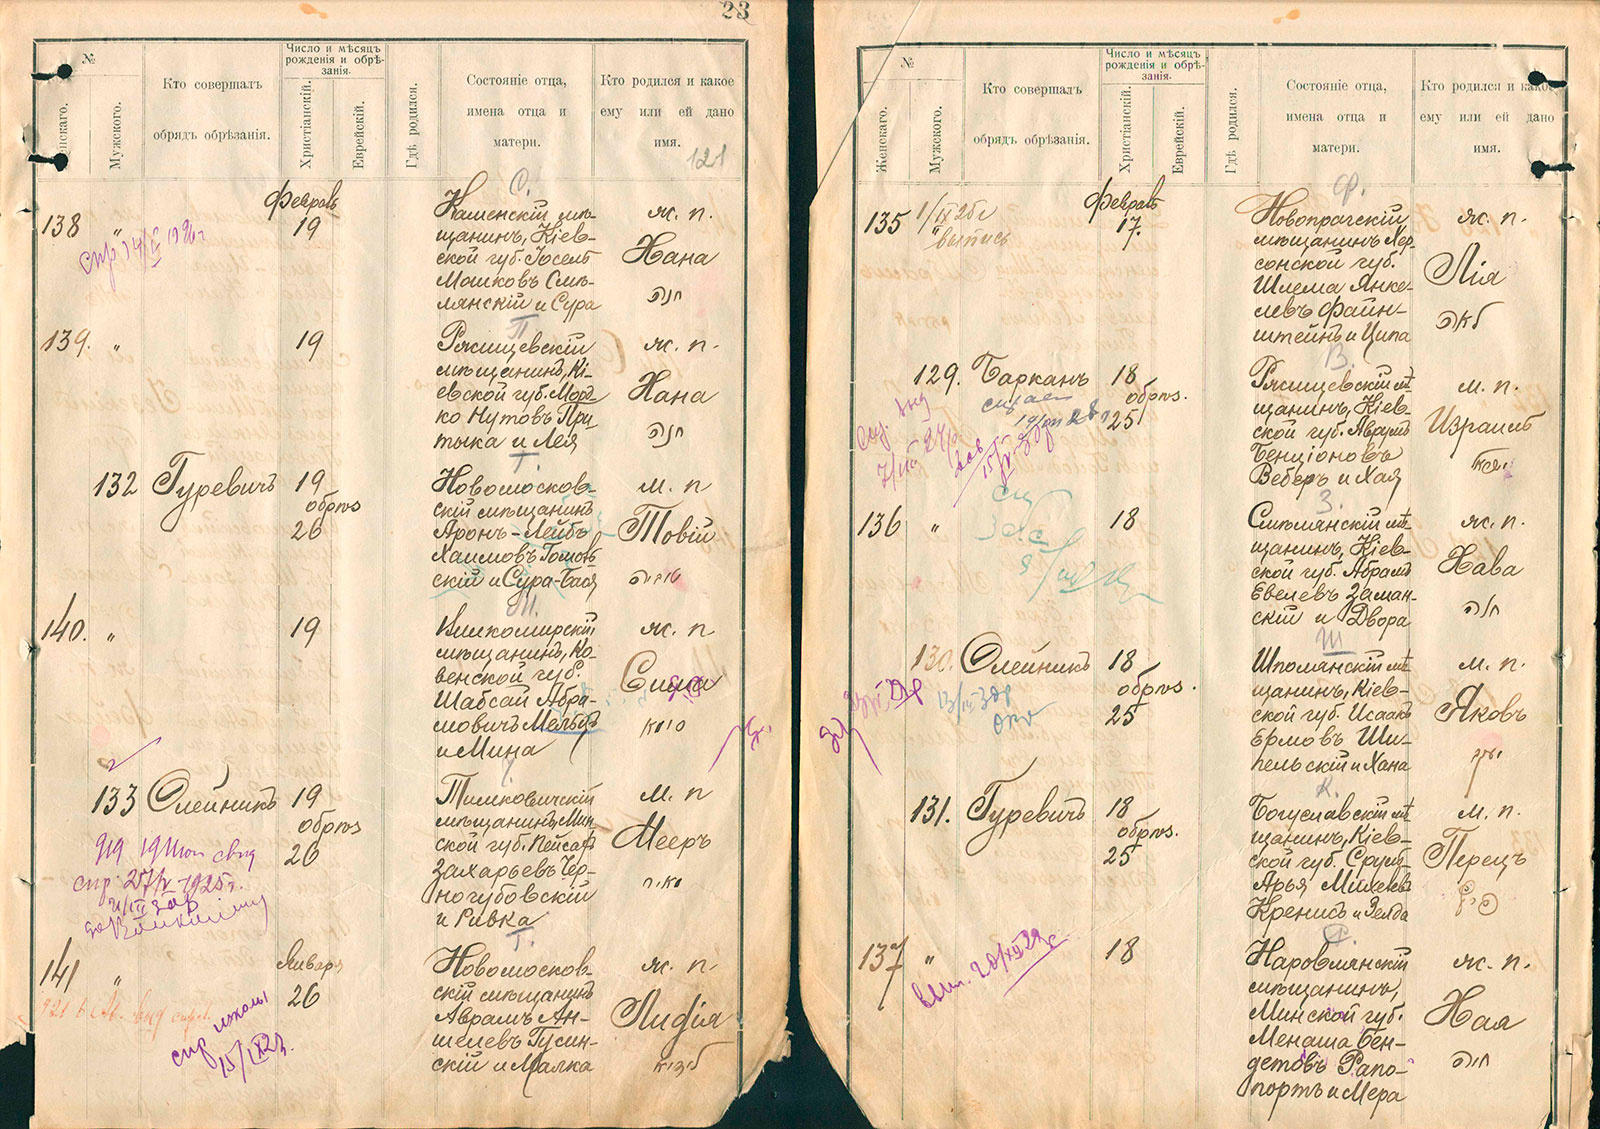 23
№
Женскаго.
Мужского.
Кто совершалъ
обрядъ обрѣзанія.
Число и мѣсяцъ
рожденія и обрѣ-
занія.
Христіанскій.
Еврейскій.
Гдѣ родился.
Состояніе отца,
имена отца и
матери.
Кто родился и какое
ему или ей дано
имя.
121
С.
138 "
Февраль
19
Каменскій мѣ-
щанинъ, Кіев-
ской губ. Іосель
Мошковъ Смѣ-
лянскій и Сура
ж. п.
Хана
חנה
П.
139. "
19
Ржищевскій
мѣщанинъ, Кі-
евской губ. Морд-
ко Нутовъ При
тыка и Лея
ж. п.
Хана
חנה
Г.
132 Гуревичъ
19
обрѣз
26
Новомосков-
скій мѣщанинъ
Аронъ-Лейбъ
Хаимовъ
скій и Сура-Бася
м. п
Товій
טוביה
М.
140. "
19
Вилкомирскій
мѣщанинъ, Ко-
венской губ.
Шабсай Абра-
мовичъ Мельни
и Мина
ж. п
Сима
סימא
Ч.
133 Олейникъ
19
обрѣз
26
Тимковичскій
мѣщанинъ, Мин
ской губ. Пейсах
Захарьевъ Чер-
ногубовскій
и Ривка
м. п
Мееръ
מאיר
Г.
141 "
Января
26
Новомосков-
скій мѣщанинъ
Аврамъ Ан-
шелевъ Гусин-
скій и Малка
ж. п.
Лифія
спр
15/IX23.
№
Женскаго.
Мужского.
Кто совершалъ
обрядъ обрѣзанія.
Число и мѣсяцъ
рожденія и обрѣ-
занія.
Христіанскій.
Еврейскій.
Гдѣ родился.
Состояніе отца,
имена отца и
матери.
Кто родился и какое
ему или ей дано
имя.
Ф.
135 "
1/IX 25г
выпись
Февраль
17.
Новопрагскій
мѣщанинъ Хер-
сонской губ.
Шлема Янке-
левъ Файн-
штейнъ и Ципа
ж. п.
Лія
לאה
В.
129. Барканъ
18
обрѣз.
25
Ржищевскій мѣ
щанинъ, Кіев-
ской губ. Аврумъ
Бенціоновъ
Веберъ и Хая
м. п.
Израиль
З.
136 "
18
Смѣлянскій мѣ
щанинъ, Кіев-
ской губ. Абрамъ
Евелевъ Заман-
скій и Двора
ж. п.
Хава
חוה
Ш
130. Олейникъ
18
обрѣз.
25
Шполянскій мѣ
щанинъ, Кіев-
ской губ. Исаакъ
Ермовъ Ши-
пельскій и Хана
м. п.
Яковъ
יעקב
К.
131. Гуревичъ
18
обрѣз.
25
Богуславскій мѣ
щанинъ, Кіев-
ской губ. Сруль
Арья Михелевъ
и Зелда
м. п.
Перецъ
פרץ
137 "
18
Наровлянскій
мѣщанинъ,
Минской губ.
Менаша Бен-
детовъ Рапо-
портъ и Мера
ж. п.
Хая
חיה